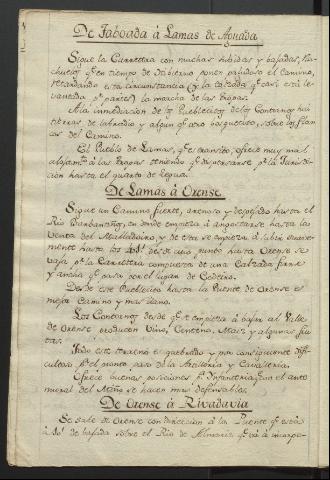 De Taboada á Lamas de Aguada
Sigue la Carretera con muchas subidas y bajadas, Ria-
chuelos qe. en tiempo de Ibierno ponen paludoso el camino,
retardando esta circunstancia (y la calzada qe. casi está le-
vantada pr. partes) la marcha de las tropas.
A la inmediacion de los Pueblecitos de los Contornos hay
tierras de labradio y algun qe. otro bosquecito, sobre los flan-
cos del Camino.
El Pueblo de Lamas, qe. es transito, ofrece muy mal
alojamto. á las tropas teniendo qe. dispersarse pr. la Jurisdi-
cion hasta el quarto de legua.
De Lamas á Orense
Sigue un Camino fuerte, arenoso y despejado hasta el
Rio Barbantiño, en donde empieza á angostarse hasta la
Venta del y de esta se empieza á subir suave-
mente hasta los junto hasta Orense se
baja pr. la Carretera compuesta de una Calzada firme
y ancha qe. pasa por el lugar de Cudeiro.
Desde este Pueblecito hasta la Puente de Orense es
mejor Camino y mas llano.
Los Contornos desde qe. se empieza á bajar al Valle
de Orense producen Vino, Centeno, Maiz y algunas fru-
tas.
Todo este terreno es quebrado y por consiguiente difi-
cultoso pa. el pronto paso de la Artilleria y Caballeria.
Ofrece buenas posiciones pa. Infanteria, y con el ante
mural del Miño se hacen mas defensables.
De Orense á Rivadavia
Se sale de Orense con direccion á la Puente qe. está
á de bajada sobre el Rio de qe. vá á incorpo-